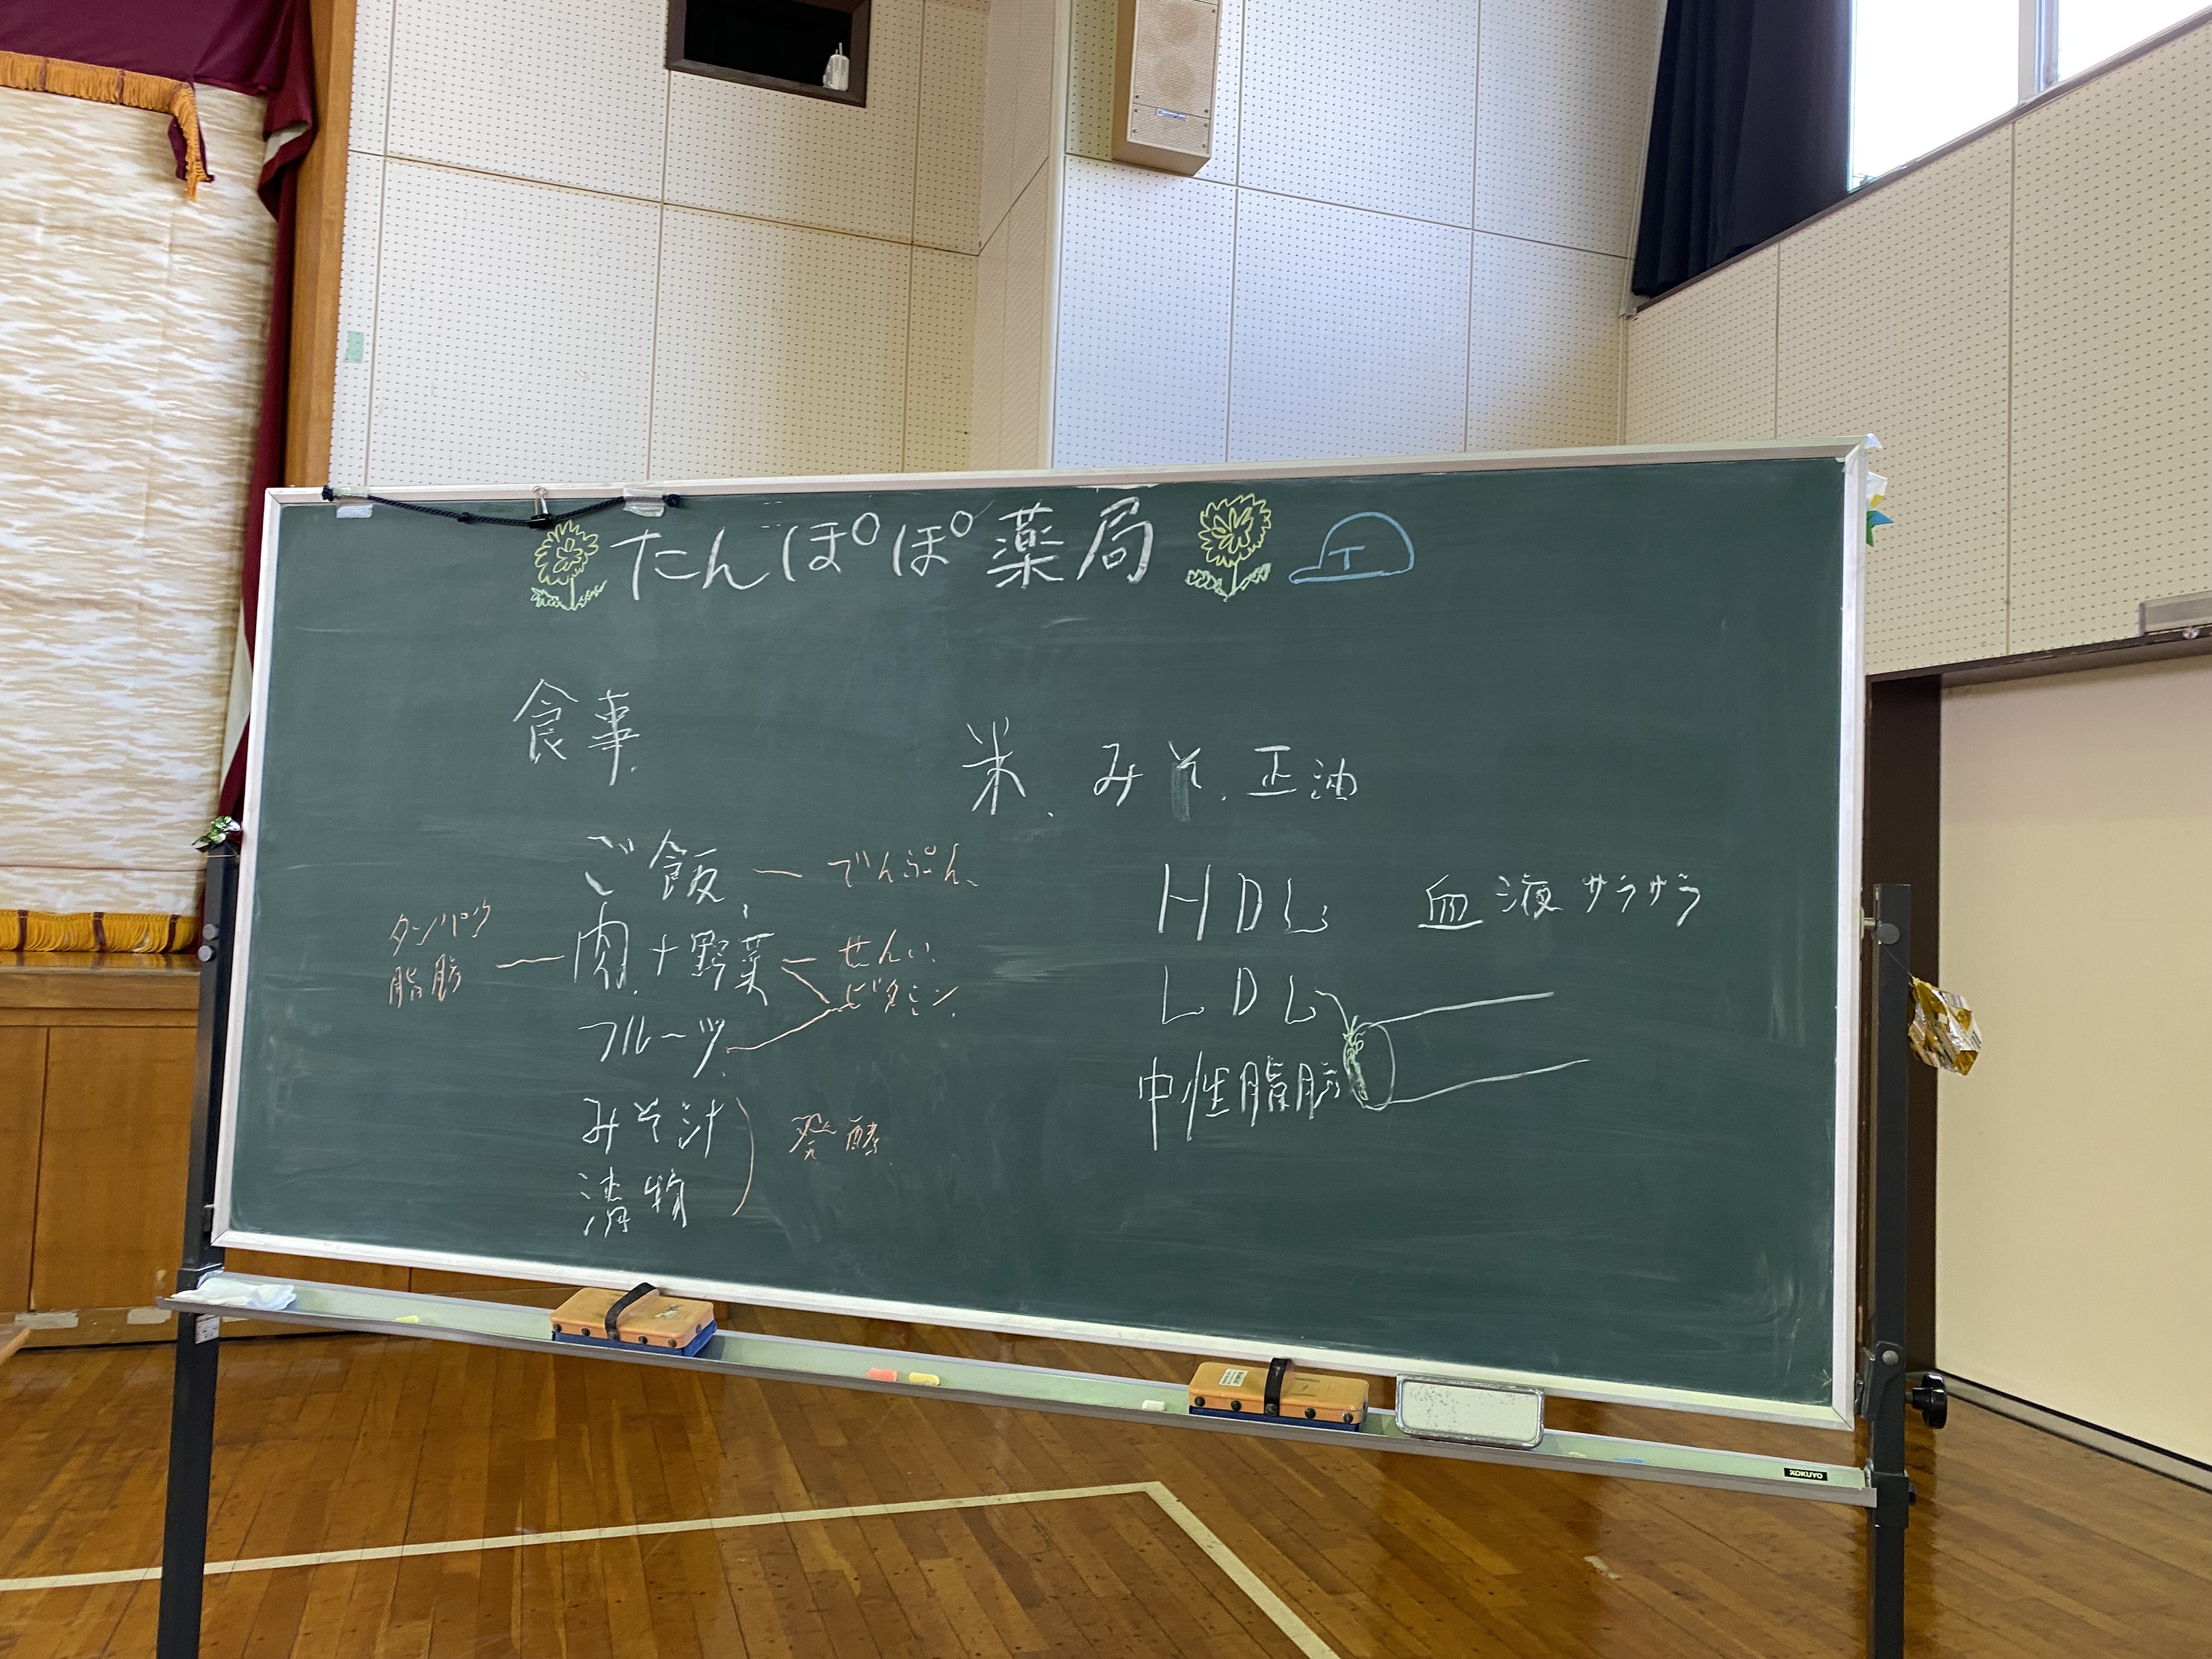 たんぽぽ薬局
T
食事
米、みそ、正油
ご飯 ー でんぷん
タンパク
脂肪
肉+野菜
せんい
ビタミン
フルーツ
みそ汁
漬物
発酵
HDL 血液サラサラ
LDL
中性脂肪
KOKUYO